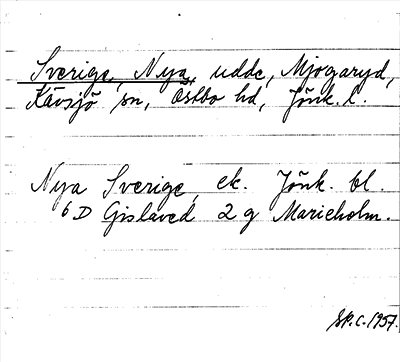 Sverige, Nya, udde, Mjogaryd,
Kävsjö sn, Östbo hd, Jönk. l.
Nya Sverige, ek. Jönk. bl.
6 D Gislaved 2 g Marieholm.
1957.